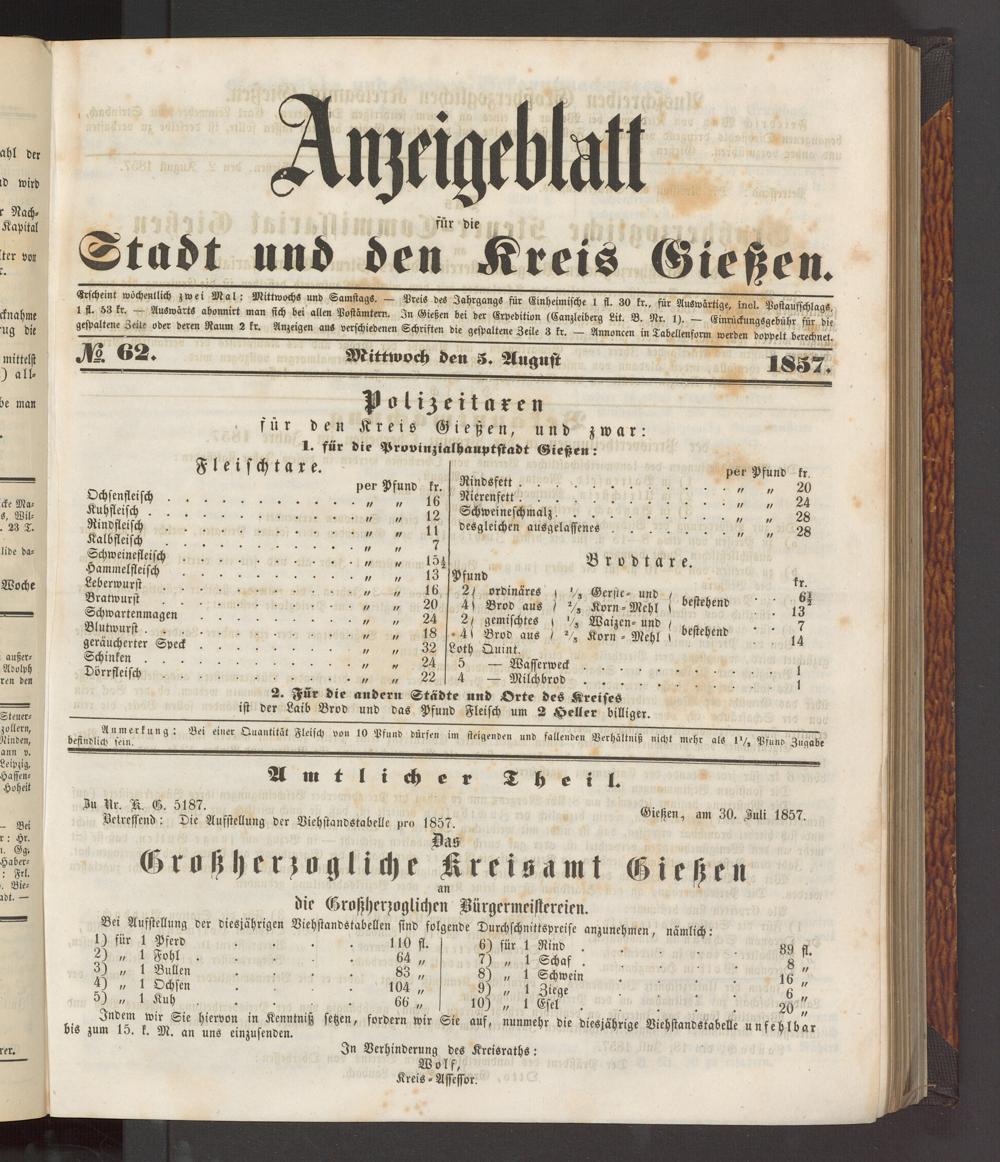 Anzeigeblatt
für die
Stadt und den Kreis Gießen.
Erscheint wöchentlich zwei Mal: Mittwochs und Samstags. — Preis des Jahrgangs für Einheimische 1 fl. 30 kr., für Auswärtige, incl. Postaufschlags,
1 fl. 53 kr. — Auswärts abonnirt man sich bei allen Postämtern. In Gießen bei der Expedition (Canzleiberg Lit. B. Nr. 1). — Einrückungsgebühr für die
gespaltene Zeile oder deren Raum 2 kr. Anzeigen aus verschiedenen Schriften die gespaltene Zeile 3 kr. — Annoncen in Tabellenform werden doppelt berechnet.
№ 62. Mittwoch den 5. August 1857.
Polizeitaxen
für den Kreis Gießen, und zwar:
1. für die Provinzialhauptstadt Gießen:
Fleischtaxe.
per Pfund kr.
Ochsenfleisch . . . . „ „ 16
Kuhfleisch . . . . „ „ 12
Rindfleisch . . . . „ „ 11
Kalbfleisch . . . . „ „ 7
Schweinefleisch . . . . „ „ 15½
Hammelfleisch . . . . „ „ 13
Leberwurst . . . . „ „ 16
Bratwurst . . . . „ „ 20
Schwartenmagen . . . . „ „ 24
Blutwurst . . . . „ „ 18
geräucherter Speck . . . . „ „ 32
Schinken . . . . „ „ 24
Dörrfleisch . . . . „ „ 22
per Pfund kr.
Rindsfett . . . . „ „ 20
Nierenfett . . . . „ „ 24
Schweineschmalz . . . . „ „ 28
desgleichen ausgelassenes . . . . „ „ 28
Brodtaxe.
Pfund kr.
2 ordinäres ⅓ Gerste- und bestehend . 6½
4 Brod aus ⅔ Korn-Mehl 13
2 gemischtes ⅓ Waizen- und bestehend . 7
4 Brod aus ⅔ Korn-Mehl 14
Loth Quint.
5 — Wasserweck . . . . 1
4 — Milchbrod . . . . 1
2. Für die andern Städte und Orte des Kreises
ist der Laib Brod und das Pfund Fleisch um 2 Heller billiger.
Anmerkung: Bei einer Quantität Fleisch von 10 Pfund dürfen im steigenden und fallenden Verhältniß nicht mehr als 1½ Pfund Zugabe
befindlich sein.
Amtlicher Theil.
Zu Nr. K. G. 5187. Gießen, am 30. Juli 1857.
Betreffend: Die Aufstellung der Viehstandstabelle pro 1857.
Das
Großherzogliche Kreisamt Gießen
an
die Großherzoglichen Bürgermeistereien.
Bei Aufstellung der diesjährigen Viehstandstabellen sind folgende Durchschnittspreise anzunehmen, nämlich:
1) für 1 Pferd . . . . 110 fl.
2) „ 1 Fohl . . . . 64 „
3) „ 1 Bullen . . . . 83 „
4) „ 1 Ochsen . . . . 104 „
5) „ 1 Kuh . . . . 66 „
6) für 1 Rind . . . . 39 fl.
7) „ 1 Schaf . . . . 8 „
8) „ 1 Schwein . . . . 16 „
9) „ 1 Ziege . . . . 6 „
10) „ 1 Esel . . . . 20 „
Indem wir Sie hiervon in Kenntniß setzen, fordern wir Sie auf, nunmehr die diesjährige Viehstandstabelle unfehlbar
bis zum 15. k. M. an uns einzusenden.
In Verhinderung des Kreisraths:
Wolf,
Kreis-Assessor.